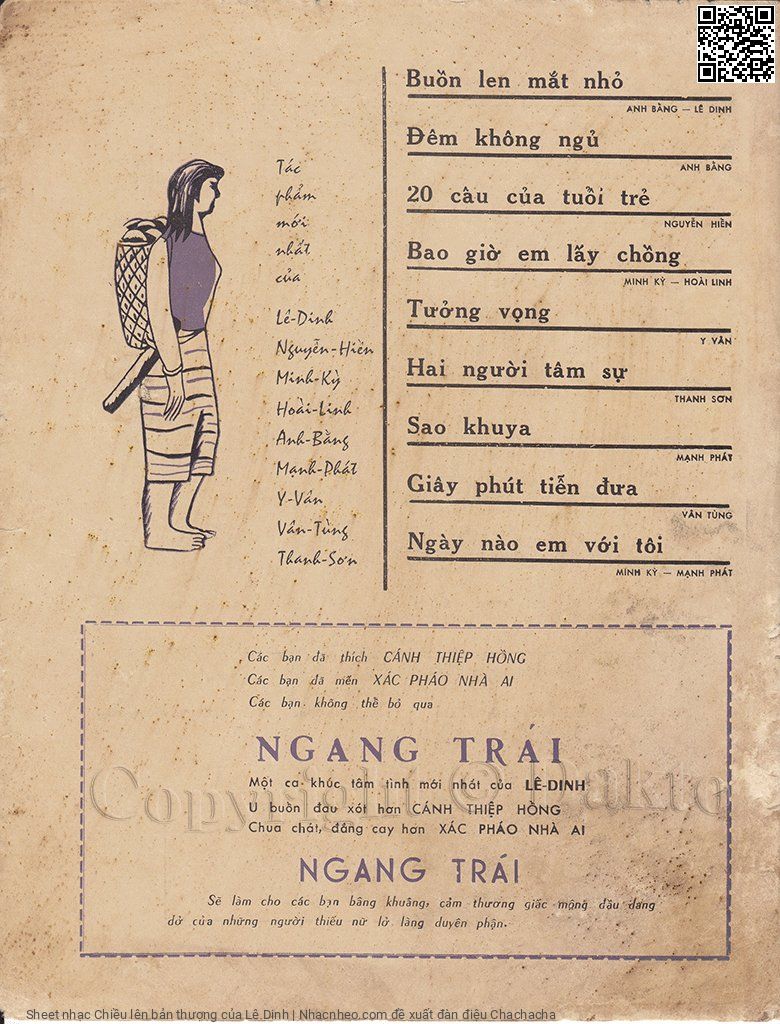 Tác
phẩm
mới
nhất
của
Lê-Dinh
Nguyễn-Hiền
Minh-Kỳ
Hoài-Linh
Anh-Bằng
Mạnh-Phát
Y-Vân
Vân-Tùng
Thanh-Sơn
Buồn len mắt nhỏ
ANH BẰNG — LÊ DINH
Đêm không ngủ
ANH BẰNG
20 câu của tuổi trẻ
NGUYỄN HIỀN
Bao giờ em lấy chồng
MINH KỲ — HOÀI LINH
Tưởng vọng
Y VÂN
Hai người tâm sự
THANH SƠN
Sao khuya
MẠNH PHÁT
Giây phút tiễn đưa
VÂN TÙNG
Ngày nào em với tôi
MINH KỲ — MẠNH PHÁT
Các bạn đã thích CÁNH THIỆP HỒNG
Các bạn đã mến XÁC PHÁO NHÀ AI
Các bạn không thể bỏ qua
NGANG TRÁI
Một ca khúc tâm tình mới nhất của LÊ-DINH
U buồn đau xót hơn CÁNH THIỆP HỒNG
Chua chát, đắng cay hơn XÁC PHÁO NHÀ AI
NGANG TRÁI
Sẽ làm cho các bạn bâng khuâng, cảm thương giấc mộng đầu dang
dở của những người thiếu nữ lở làng duyên phận.
Copyright ©
Sheet nhạc Chiều lên bản thượng của Lê Dinh | Nhacnheo.com đề xuất đàn điệu Chachacha